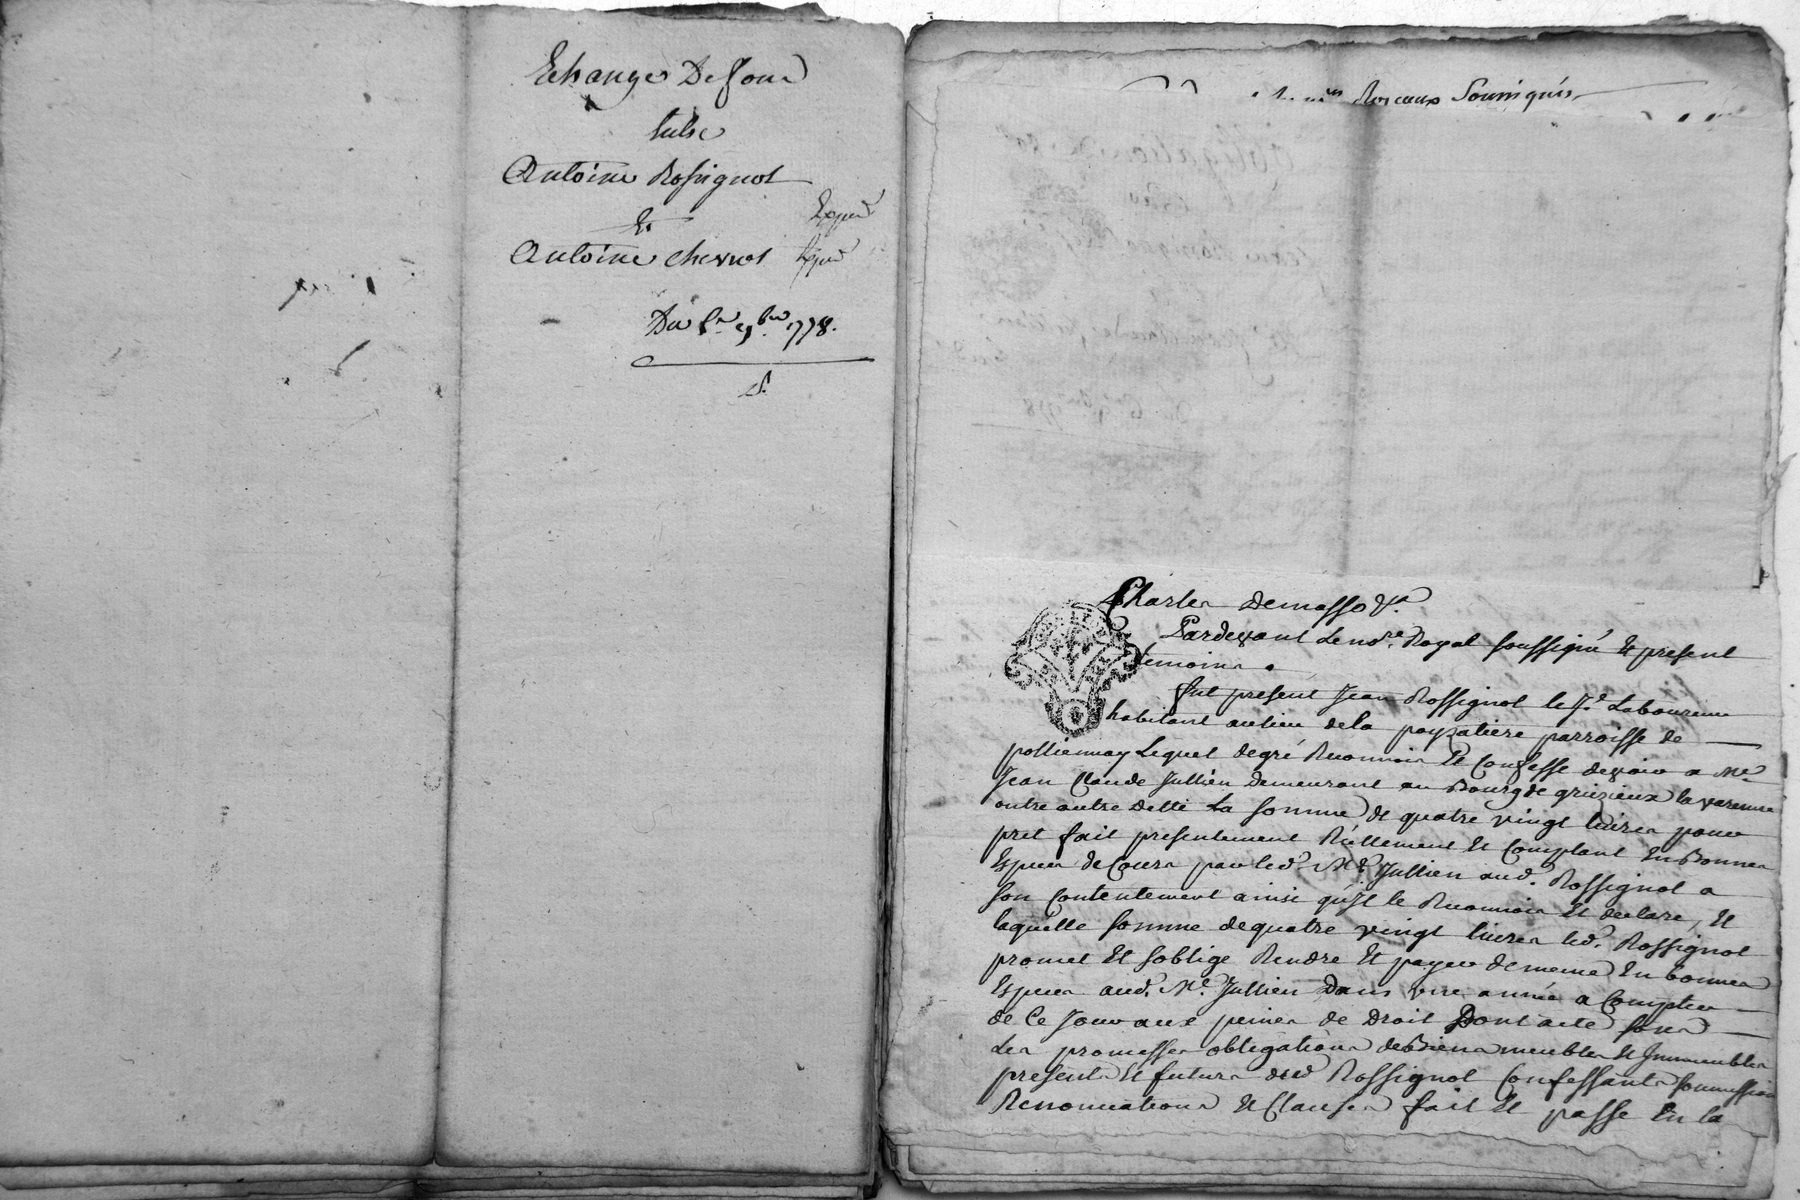 Echange De fond
Entre
Antoine Rossignol
Et
Antoine Chevrot
Expéd
Expéd
Du 8.e 9.bre 1778.
Charles Demasso P.r
Pardevant Le no.re Royal soussigné Et present
temoins.
fut present Jean Rossignol le J.e Laboureur
habitant aulieu dela payzatiere parroisse de
pollionnay Lequel degré Reconnoit Et Confesse devoir a M.e
Jean Claude Jullien Demeurant au Bourg de grezieux la varenne
outre autre Dette La somme de quatre vingt livres pour
pret fait presentement Réellement Et Comptant En Bonnes
Especes de Cours par led. M.e Jullien aud. Rossignol a
son Contentement ainsi qu'jl le Reconnoit Et declare, Et
laquelle somme de quatre vingt livres led. Rossignol
promet Et soblige Rendre Et payer de meme En bonnes
Especes aud. M.e Jullien Dans une année a Compter
de Ce Jour aux peines de Droit Dont acte sous
Les promesses obligations de Biens meubles Et Jmmeubles
presents Et futurs dud Rossignol Confessants soumissions
Renonciations Et Clauses fait Et passé En la